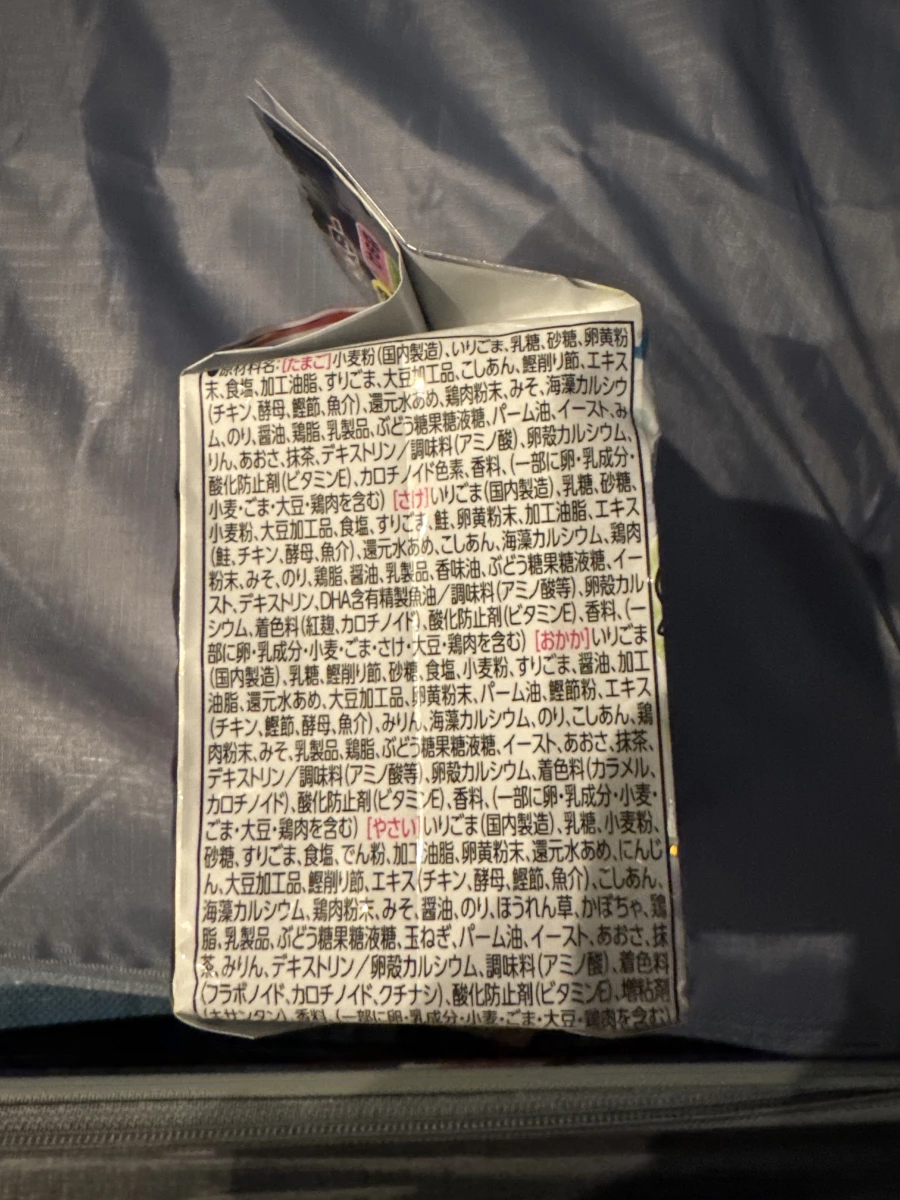 ●原材料名:[たまご]小麦粉(国内製造)、いりごま、乳糖、砂糖、卵黄粉
末、食塩、加工油脂、すりごま、大豆加工品、こしあん、鰹削り節、エキス
(チキン、酵母、鰹節、魚介)、還元水あめ、鶏肉粉末、みそ、海藻カルシウ
ム、のり、醤油、鶏脂、乳製品、ぶどう糖果糖液糖、パーム油、イースト、み
りん、あおさ、抹茶、デキストリン/調味料(アミノ酸)、卵殻カルシウム、
酸化防止剤(ビタミンE)、カロチノイド色素、香料、(一部に卵・乳成分・
小麦・ごま・大豆・鶏肉を含む) [さけ]いりごま(国内製造)、乳糖、砂糖、
小麦粉、大豆加工品、食塩、すりごま、鮭、卵黄粉末、加工油脂、エキス
(鮭、チキン、酵母、魚介)、還元水あめ、こしあん、海藻カルシウム、鶏肉
粉末、みそ、のり、鶏脂、醤油、乳製品、香味油、ぶどう糖果糖液糖、イー
スト、デキストリン、DHA含有精製魚油/調味料(アミノ酸等)、卵殻カル
シウム、着色料(紅麹、カロチノイド)、酸化防止剤(ビタミンE)、香料、(一
部に卵・乳成分・小麦・ごま・さけ・大豆・鶏肉を含む) [おかか]いりごま
(国内製造)、乳糖、鰹削り節、砂糖、食塩、小麦粉、すりごま、醤油、加工
油脂、還元水あめ、大豆加工品、卵黄粉末、パーム油、鰹節粉、エキス
(チキン、鰹節、酵母、魚介)、みりん、海藻カルシウム、のり、こしあん、鶏
肉粉末、みそ、乳製品、鶏脂、ぶどう糖果糖液糖、イースト、あおさ、抹茶、
デキストリン/調味料(アミノ酸等)、卵殻カルシウム、着色料(カラメル、
カロチノイド)、酸化防止剤(ビタミンE)、香料、(一部に卵・乳成分・小麦・
ごま・大豆・鶏肉を含む) [やさい]いりごま(国内製造)、乳糖、小麦粉、
砂糖、すりごま、食塩、でん粉、加工油脂、卵黄粉末、還元水あめ、にんじ
ん、大豆加工品、鰹削り節、エキス(チキン、酵母、鰹節、魚介)、こしあん、
海藻カルシウム、鶏肉粉末、みそ、醤油、のり、ほうれん草、かぼちゃ、鶏
脂、乳製品、ぶどう糖果糖液糖、玉ねぎ、パーム油、イースト、あおさ、抹
茶、みりん、デキストリン/卵殻カルシウム、調味料(アミノ酸)、着色料
(フラボノイド、カロチノイド、クチナシ)、酸化防止剤(ビタミンE)、増粘剤
(キサンタン)、香料、(一部に卵・乳成分・小麦・ごま・大豆・鶏肉を含む)